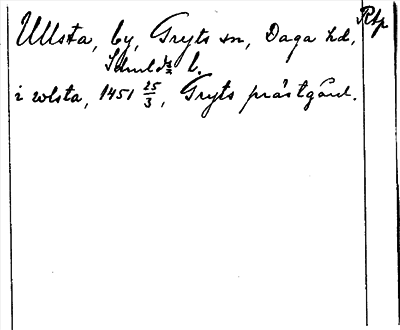 Ullsta, by, Gryts sn, Daga hd, Rtp
Schuldz b.
i wlsta, 1451 25/3, Gryts prästgård.